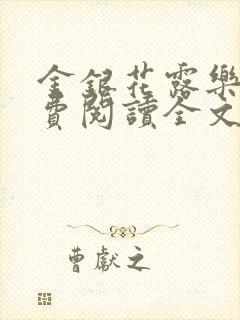 金銀花露樂
費閱讀全文
曹獻之